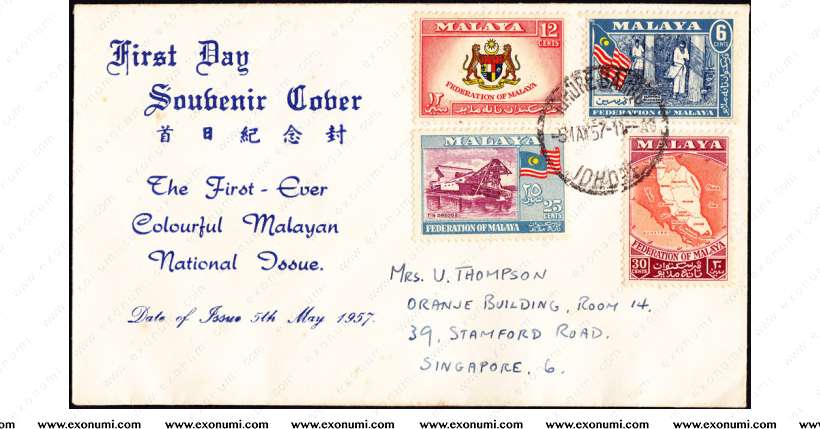 First Day
Souvenir Cover
首日紀念封
The First-Ever
Colourful Malayan
National Issue.
Date of Issue 5th May 1957.
MALAYA
12
CENTS
FEDERATION OF MALAYA
١٢
سين
ڤرسكتوان تانه ملايو
MALAYA
6
CENTS
FEDERATION OF MALAYA
JOHORE BAHRU
-5MAY57-11
JOHORE
MALAYA
٢٥
سين
25
CENTS
TIN DREDGE
FEDERATION OF MALAYA
MALAYA
FEDERATION OF MALAYA
30
CENTS
ڤرسكتوان
تانه ملايو
٣٠
سين
MRS. U. THOMPSON
ORANJE BUILDING, ROOM 14.
39, STAMFORD ROAD.
SINGAPORE, 6.
www.exonumi.com www.exonumi.com www.exonumi.com www.exonumi.com www.exonumi.com